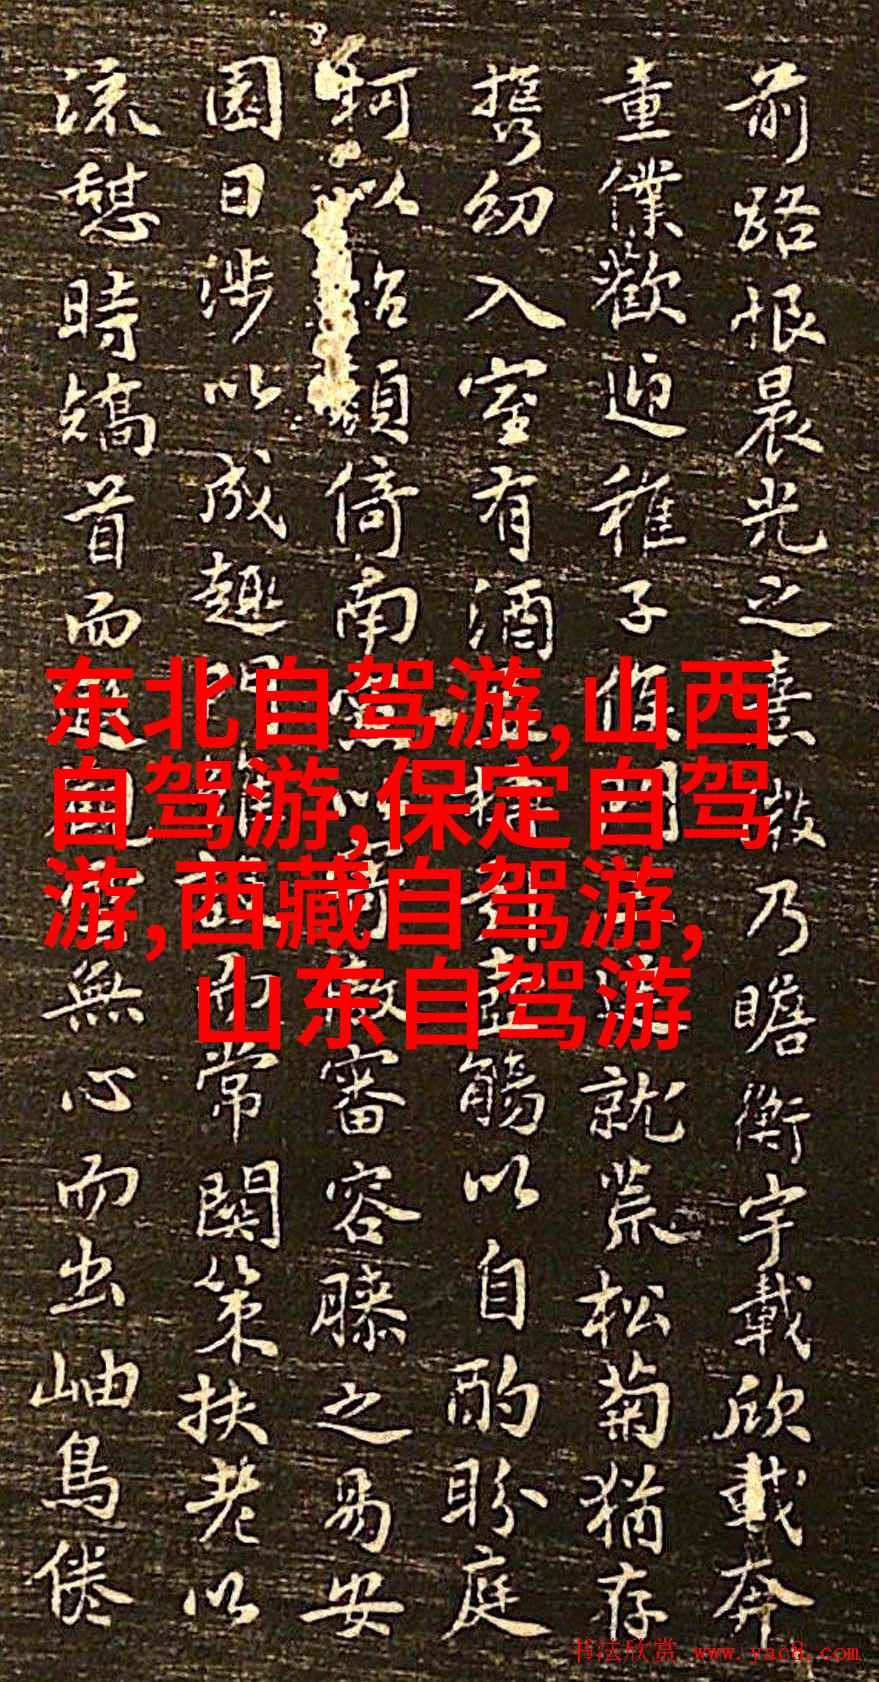 前路恨晨光之熹微乃瞻衡宇載欣載奔
童僕歡迎稚子候門就荒松菊猶存
携幼入室有酒觴以自酌盼庭
柯以怡顏倚南窻以審容膝之易安
園日涉以成趣門而常關策扶老以
流憩時矯首而無心而出岫鳥倦
东北自驾游,山西
自驾游,保定自驾
游,西藏自驾游,
山东自驾游
书法欣赏 www.yac8.com